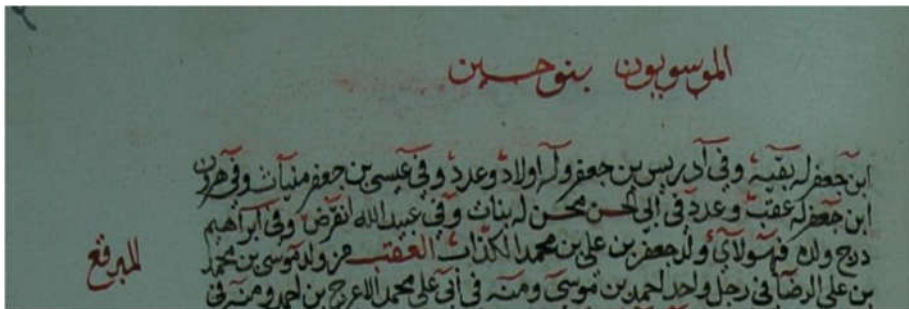 الموسويون بنو حسين
ابن جعفر له بقية وفي ادريس بن جعفر وله اولاد وعدد وفي عيسى بن جعفر وفي هرون
ابن جعفر له عقب وعدد في ابي الحسن محسن له بنات وفي عبدالله انقرض وفي ابراهيم
درج ولده فهولاي ولد جعفر بن علي بن محمد الكذاب العقب من ولد موسى بن محمد
المبرقع
بن علي الرضا في رجل واحد احمد بن موسى ومنه في ابي علي محمد الاعرج بن احمد ومنه في